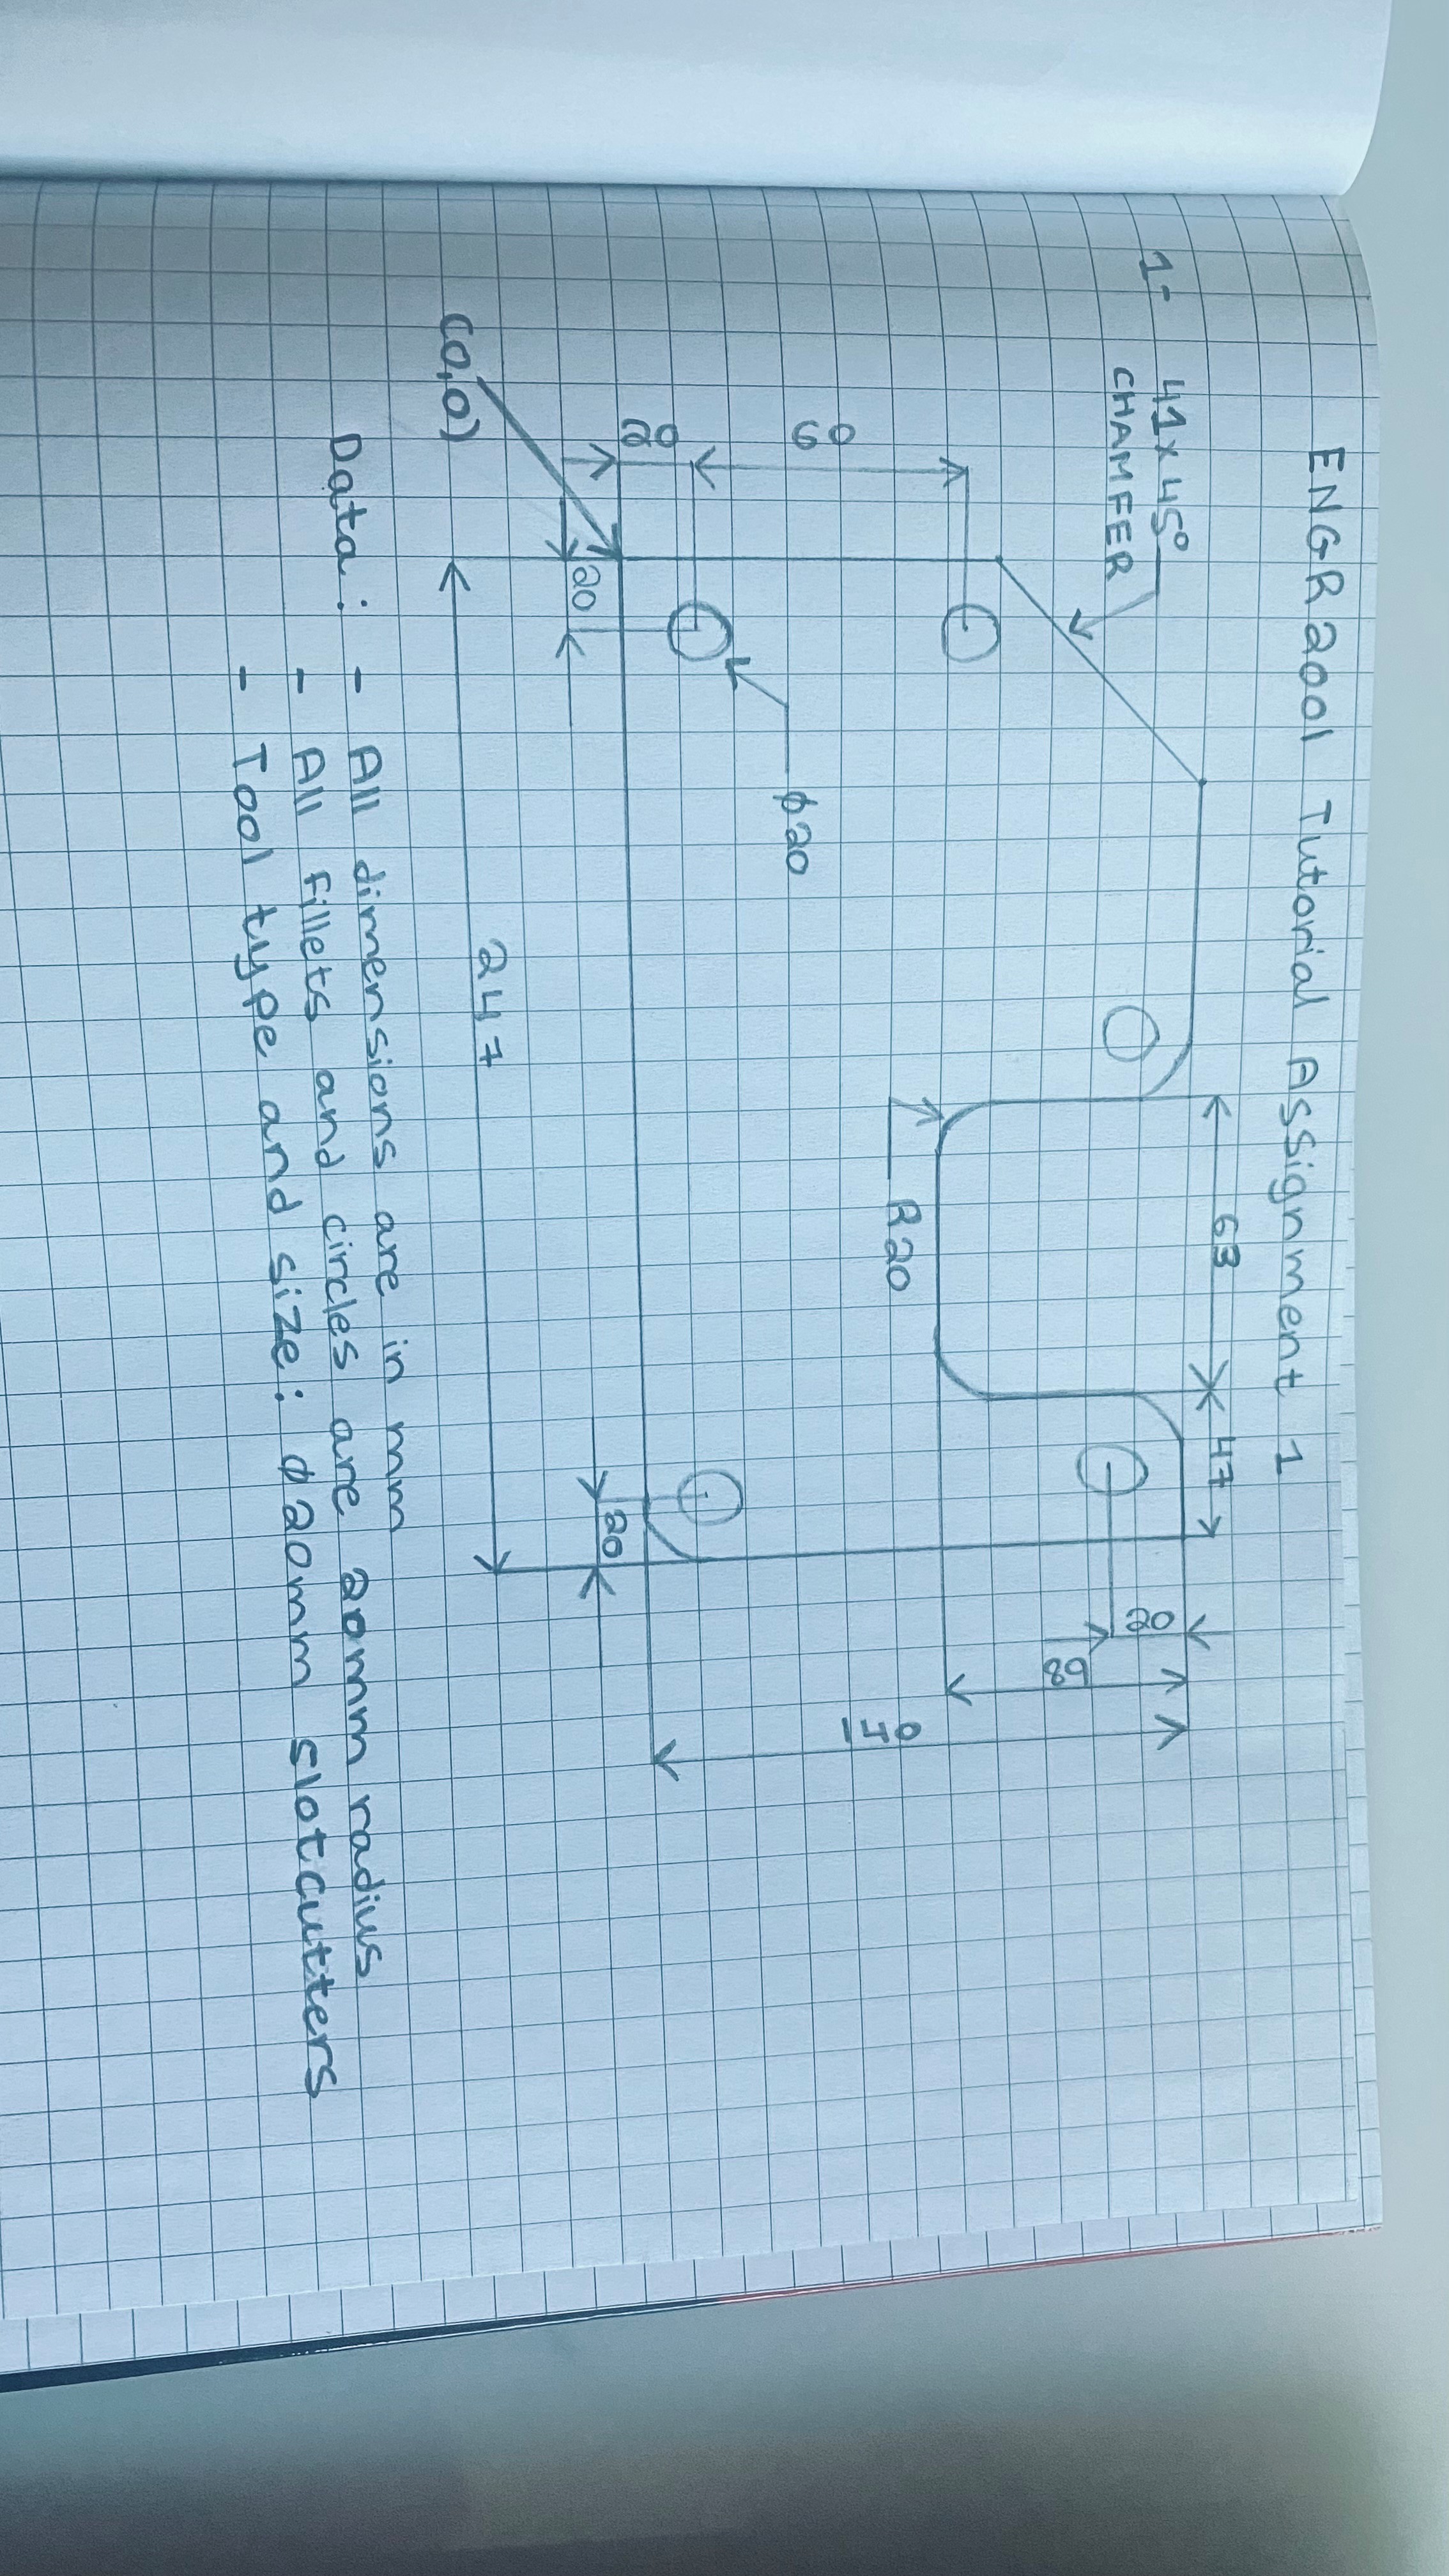 ENGR2001 Tutorial Assignment 1
1-
41x45°
CHAMFER
63
47
20
68
140
60
20
φ20
R20
20
20
(0,0)
247
Data: - All dimensions are in mm
- All fillets and circles are 20mm radius
- Tool type and size: φ20mm slotcutters